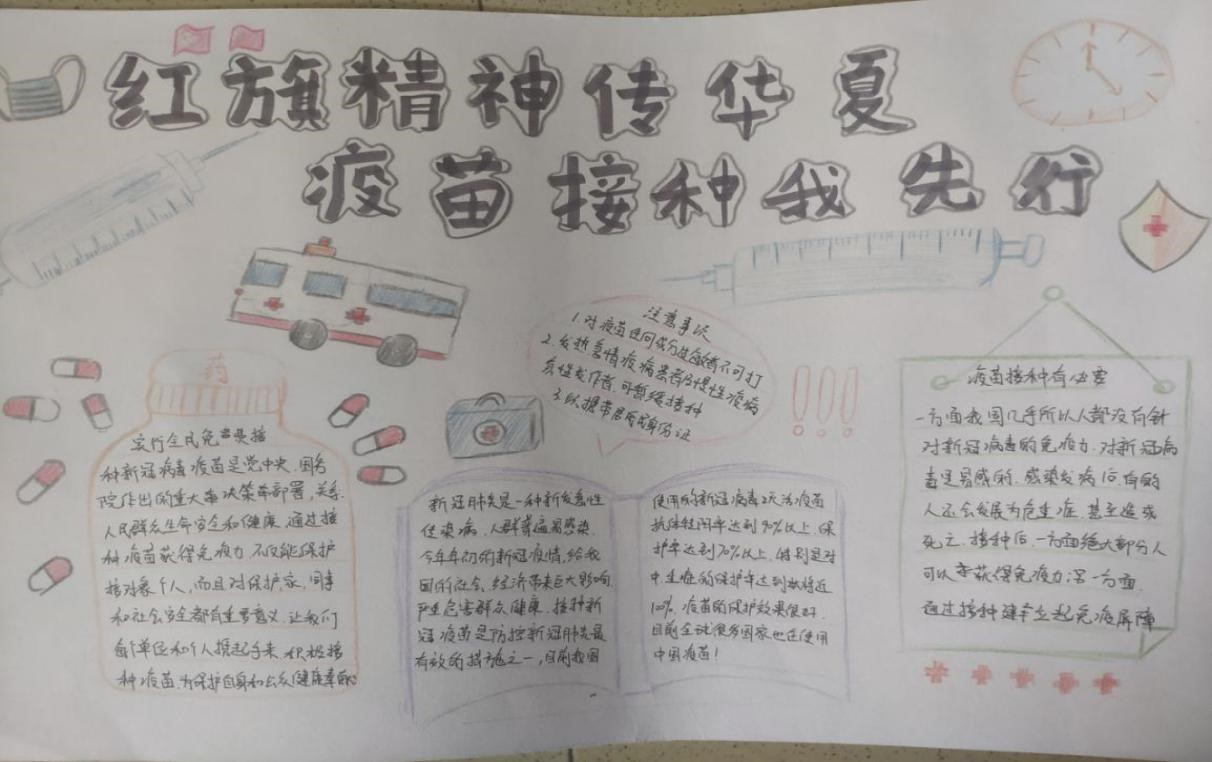 红旗精神传华夏
疫苗接种我先行
药
实行全民免费接
种新冠病毒疫苗是党中央、国务
院作出的重大事决策部署,关系
人民群众生命安全和健康,通过接
种疫苗获得免疫力 不仅能保护
接对象个人,而且对保护家、同事
和社会安全都有重要意义,让我们
每个单位和个人携起手来,积极接
种疫苗,为保护自身和公众健康
注意事项
1.对疫苗任何成分过敏者不可打
2.发热急情疫病患者及慢性疫病
急性发作者,可暂缓接种
3.以携带居民身份证
新冠肺炎是一种新发急性
传染病,人群普遍易感染,
今年年初的新冠疫情,给我
国的社会、经济带来巨大影响,
严重危害群众健康,接种新
冠疫苗是防控新冠肺炎最
有效的措施之一,目前我国
使用的新冠病毒灭活疫苗
抗体转阳率达到90%以上,保
护率达到70%以上,特别是对
中、重症的保护率达到
100%,疫苗的保护效果很好,
目前全球很多国家也在使用
中国疫苗!
疫苗接种有必要
一方面我国几乎所以人都没有针
对新冠病毒的免疫力,对新冠病
毒是易感的,感染发病后,有的
人还会发展为危重症,甚至造成
死亡,接种后,一方面绝大部分人
可以获得免疫力;另一方面,
通过接种建立起免疫屏障